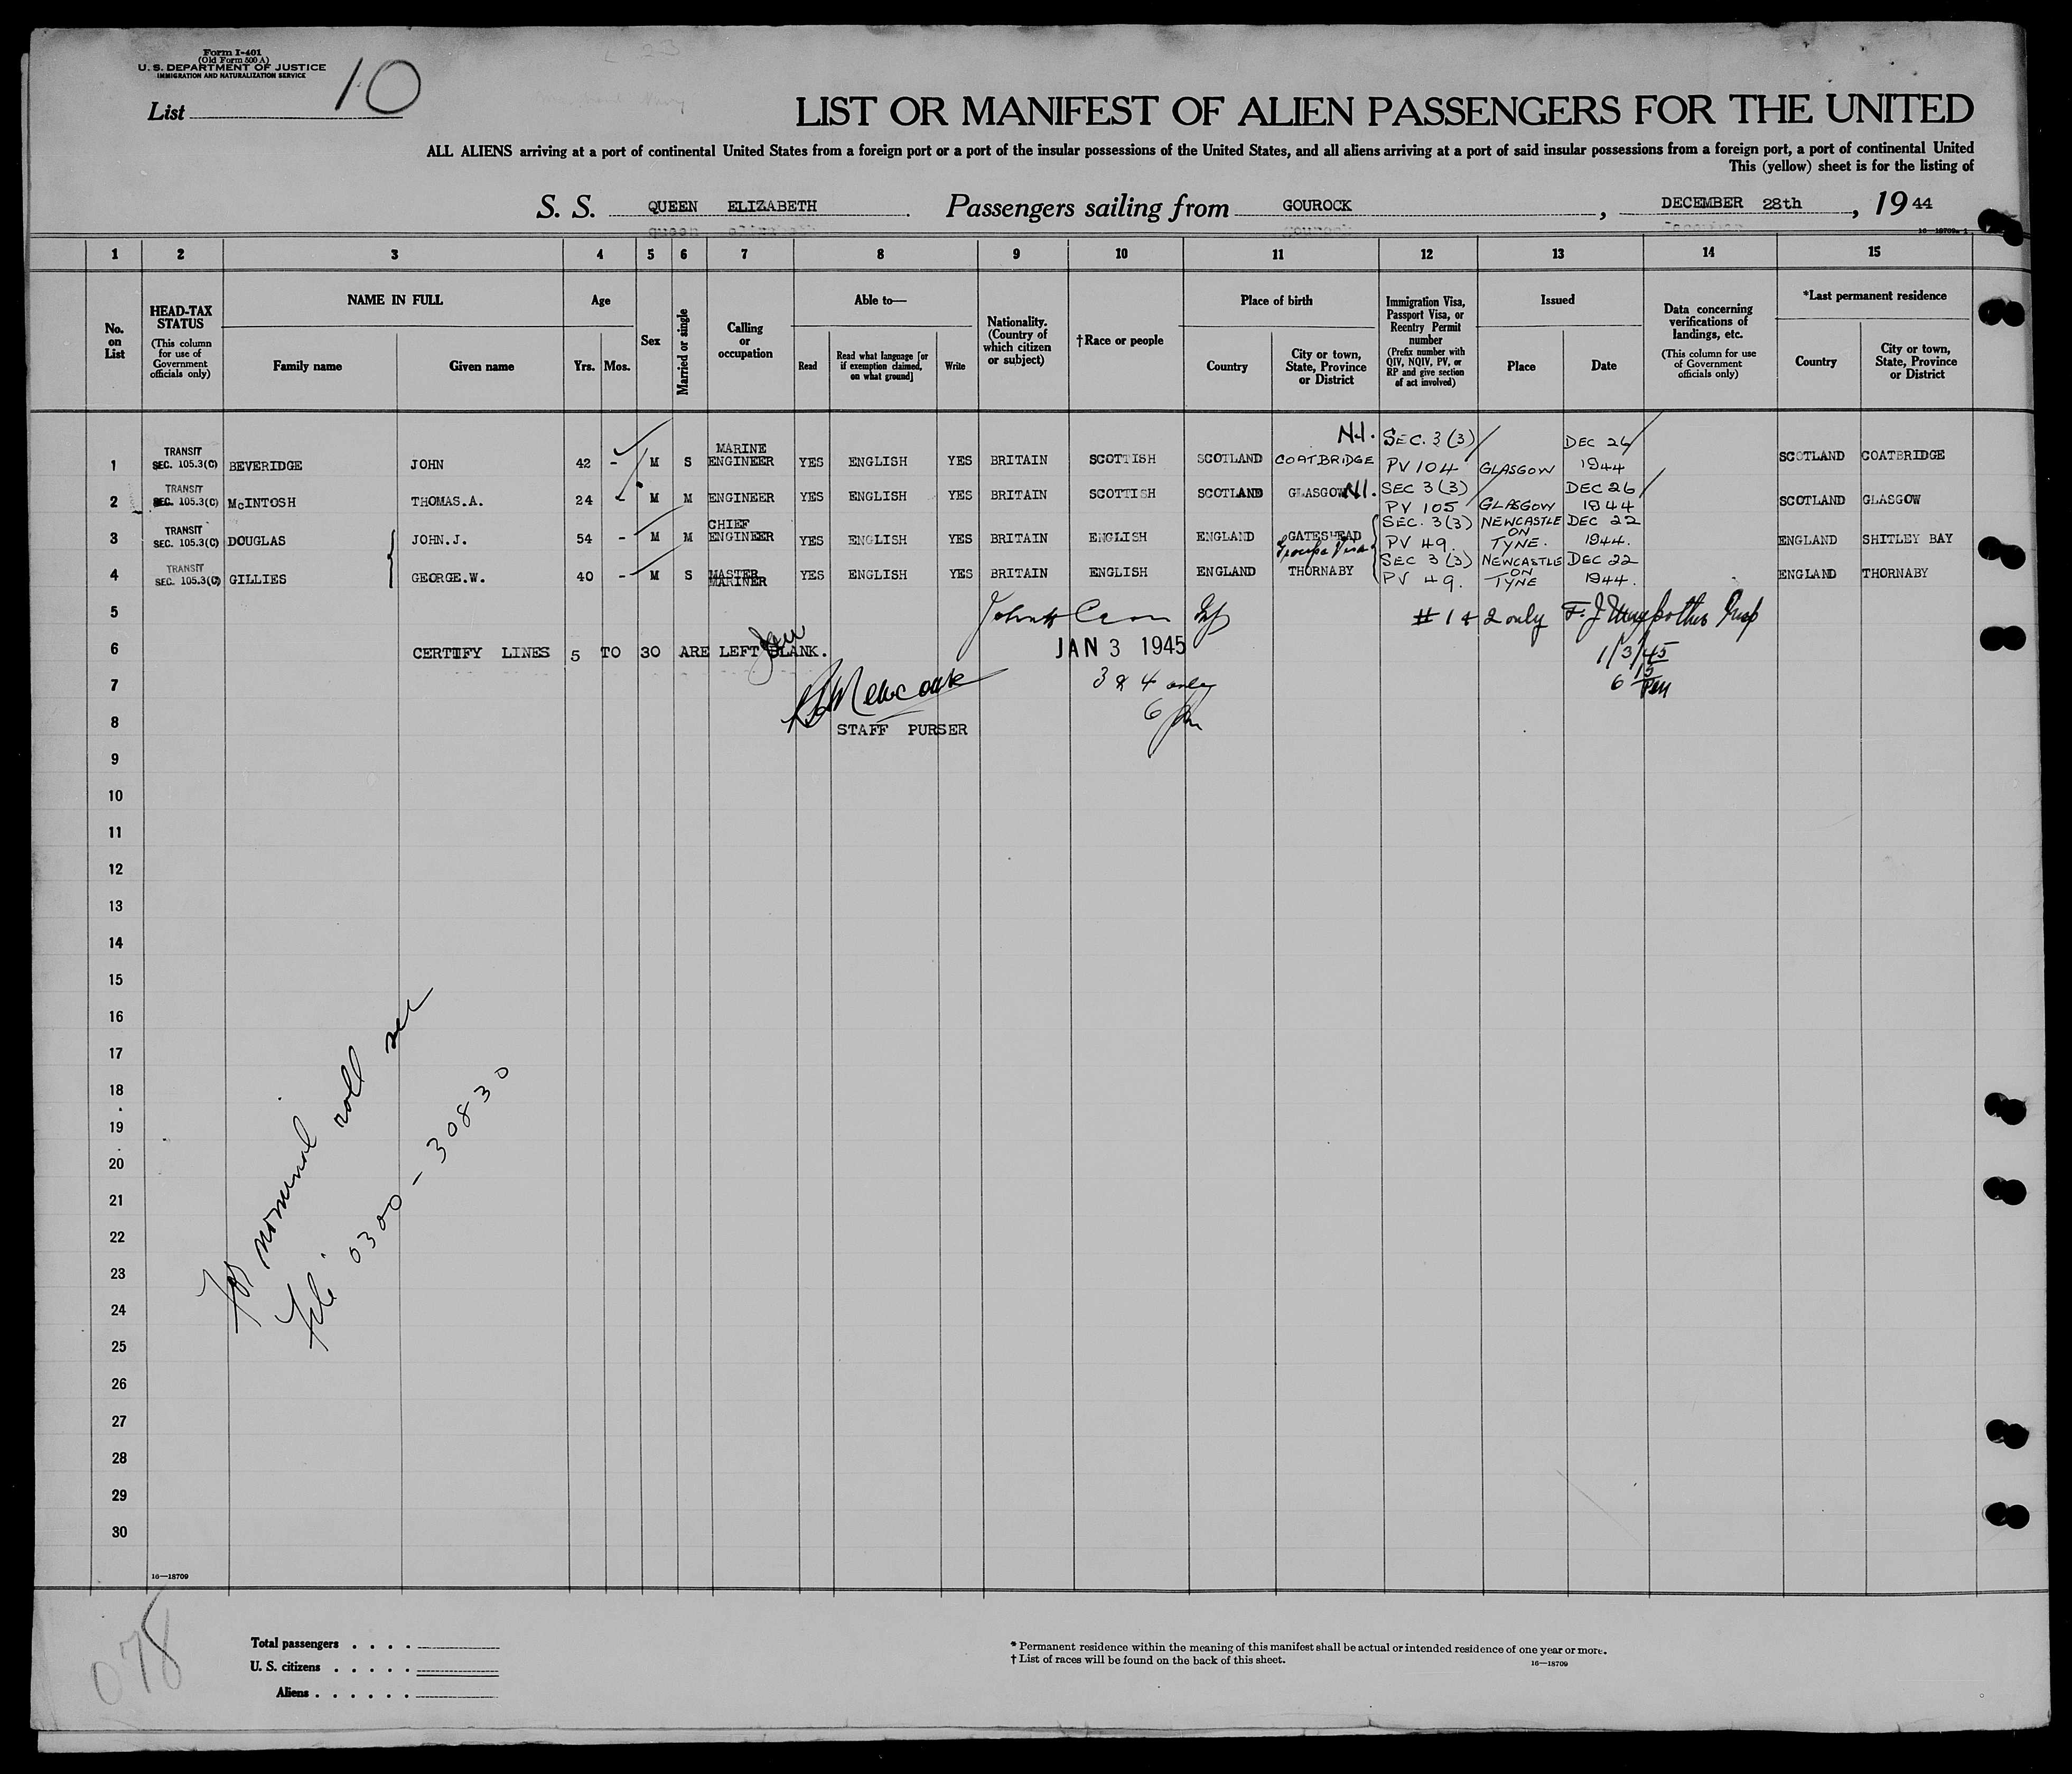 Form I-401
(Old Form 500 A)
U. S. DEPARTMENT OF JUSTICE
IMMIGRATION AND NATURALIZATION SERVICE
List 10
LIST OR MANIFEST OF ALIEN PASSENGERS FOR THE UNITED
ALL ALIENS arriving at a port of continental United States from a foreign port or a port of the insular possessions of the United States, and all aliens arriving at a port of said insular possessions from a foreign port, a port of continental United
This (yellow) sheet is for the listing of
S. S. QUEEN ELIZABETH . Passengers sailing from GOUROCK , DECEMBER 28th , 19 44
1 2 3 4 5 6 7 8 9 10 11 12 13 14 15
No. on List
HEAD-TAX STATUS
(This column for use of Government officials only)
NAME IN FULL
Family name
Given name
Age
Yrs. Mos.
Sex
Married or single
Calling or occupation
Able to—
Read
Read what language [or if exemption claimed, on what ground]
Write
Nationality. (Country of which citizen or subject)
†Race or people
Place of birth
Country
City or town, State, Province or District
Immigration Visa, Passport Visa, or Reentry Permit number
(Prefix number with QIV, NQIV, PV, or RP and give section of act involved)
Issued
Place
Date
Data concerning verifications of landings, etc.
(This column for use of Government officials only)
*Last permanent residence
Country
City or town, State, Province or District
1 TRANSIT SEC. 105.3(C) BEVERIDGE JOHN 42 - M S MARINE ENGINEER YES ENGLISH YES BRITAIN SCOTTISH SCOTLAND COATBRIDGE SEC. 3(3) PV 104 GLASGOW DEC 26 1944 SCOTLAND COATBRIDGE
2 TRANSIT SEC. 105.3(C) McINTOSH THOMAS.A. 24 - M M ENGINEER YES ENGLISH YES BRITAIN SCOTTISH SCOTLAND GLASGOW SEC 3(3) PV 105 GLASGOW DEC 26 1944 SCOTLAND GLASGOW
3 TRANSIT SEC. 105.3(C) DOUGLAS JOHN.J. 54 - M M CHIEF ENGINEER YES ENGLISH YES BRITAIN ENGLISH ENGLAND GATESHEAD SEC. 3(3) PV 49. NEWCASTLE ON TYNE. DEC 22 1944. ENGLAND SHITLEY BAY
4 TRANSIT SEC. 105.3(C) GILLIES GEORGE.W. 40 - M S MASTER MARINER YES ENGLISH YES BRITAIN ENGLISH ENGLAND THORNABY SEC 3(3) PV 49. NEWCASTLE ON TYNE DEC 22 1944. ENGLAND THORNABY
5 # 1 & 2 only
6 CERTIFY LINES 5 TO 30 ARE LEFT BLANK. JAN 3 1945 1/3/45
7 3 & 4 only
8 STAFF PURSER
9
10
11
12
13
14
15
16
17
18
19
20
21
22
23
24
25
26
27
28
29
30
For nominal roll see
file 0300 - 30830
16—18709
078
Total passengers . . . .
U. S. citizens . . . . .
Aliens . . . . . .
* Permanent residence within the meaning of this manifest shall be actual or intended residence of one year or more.
† List of races will be found on the back of this sheet.
16—18709